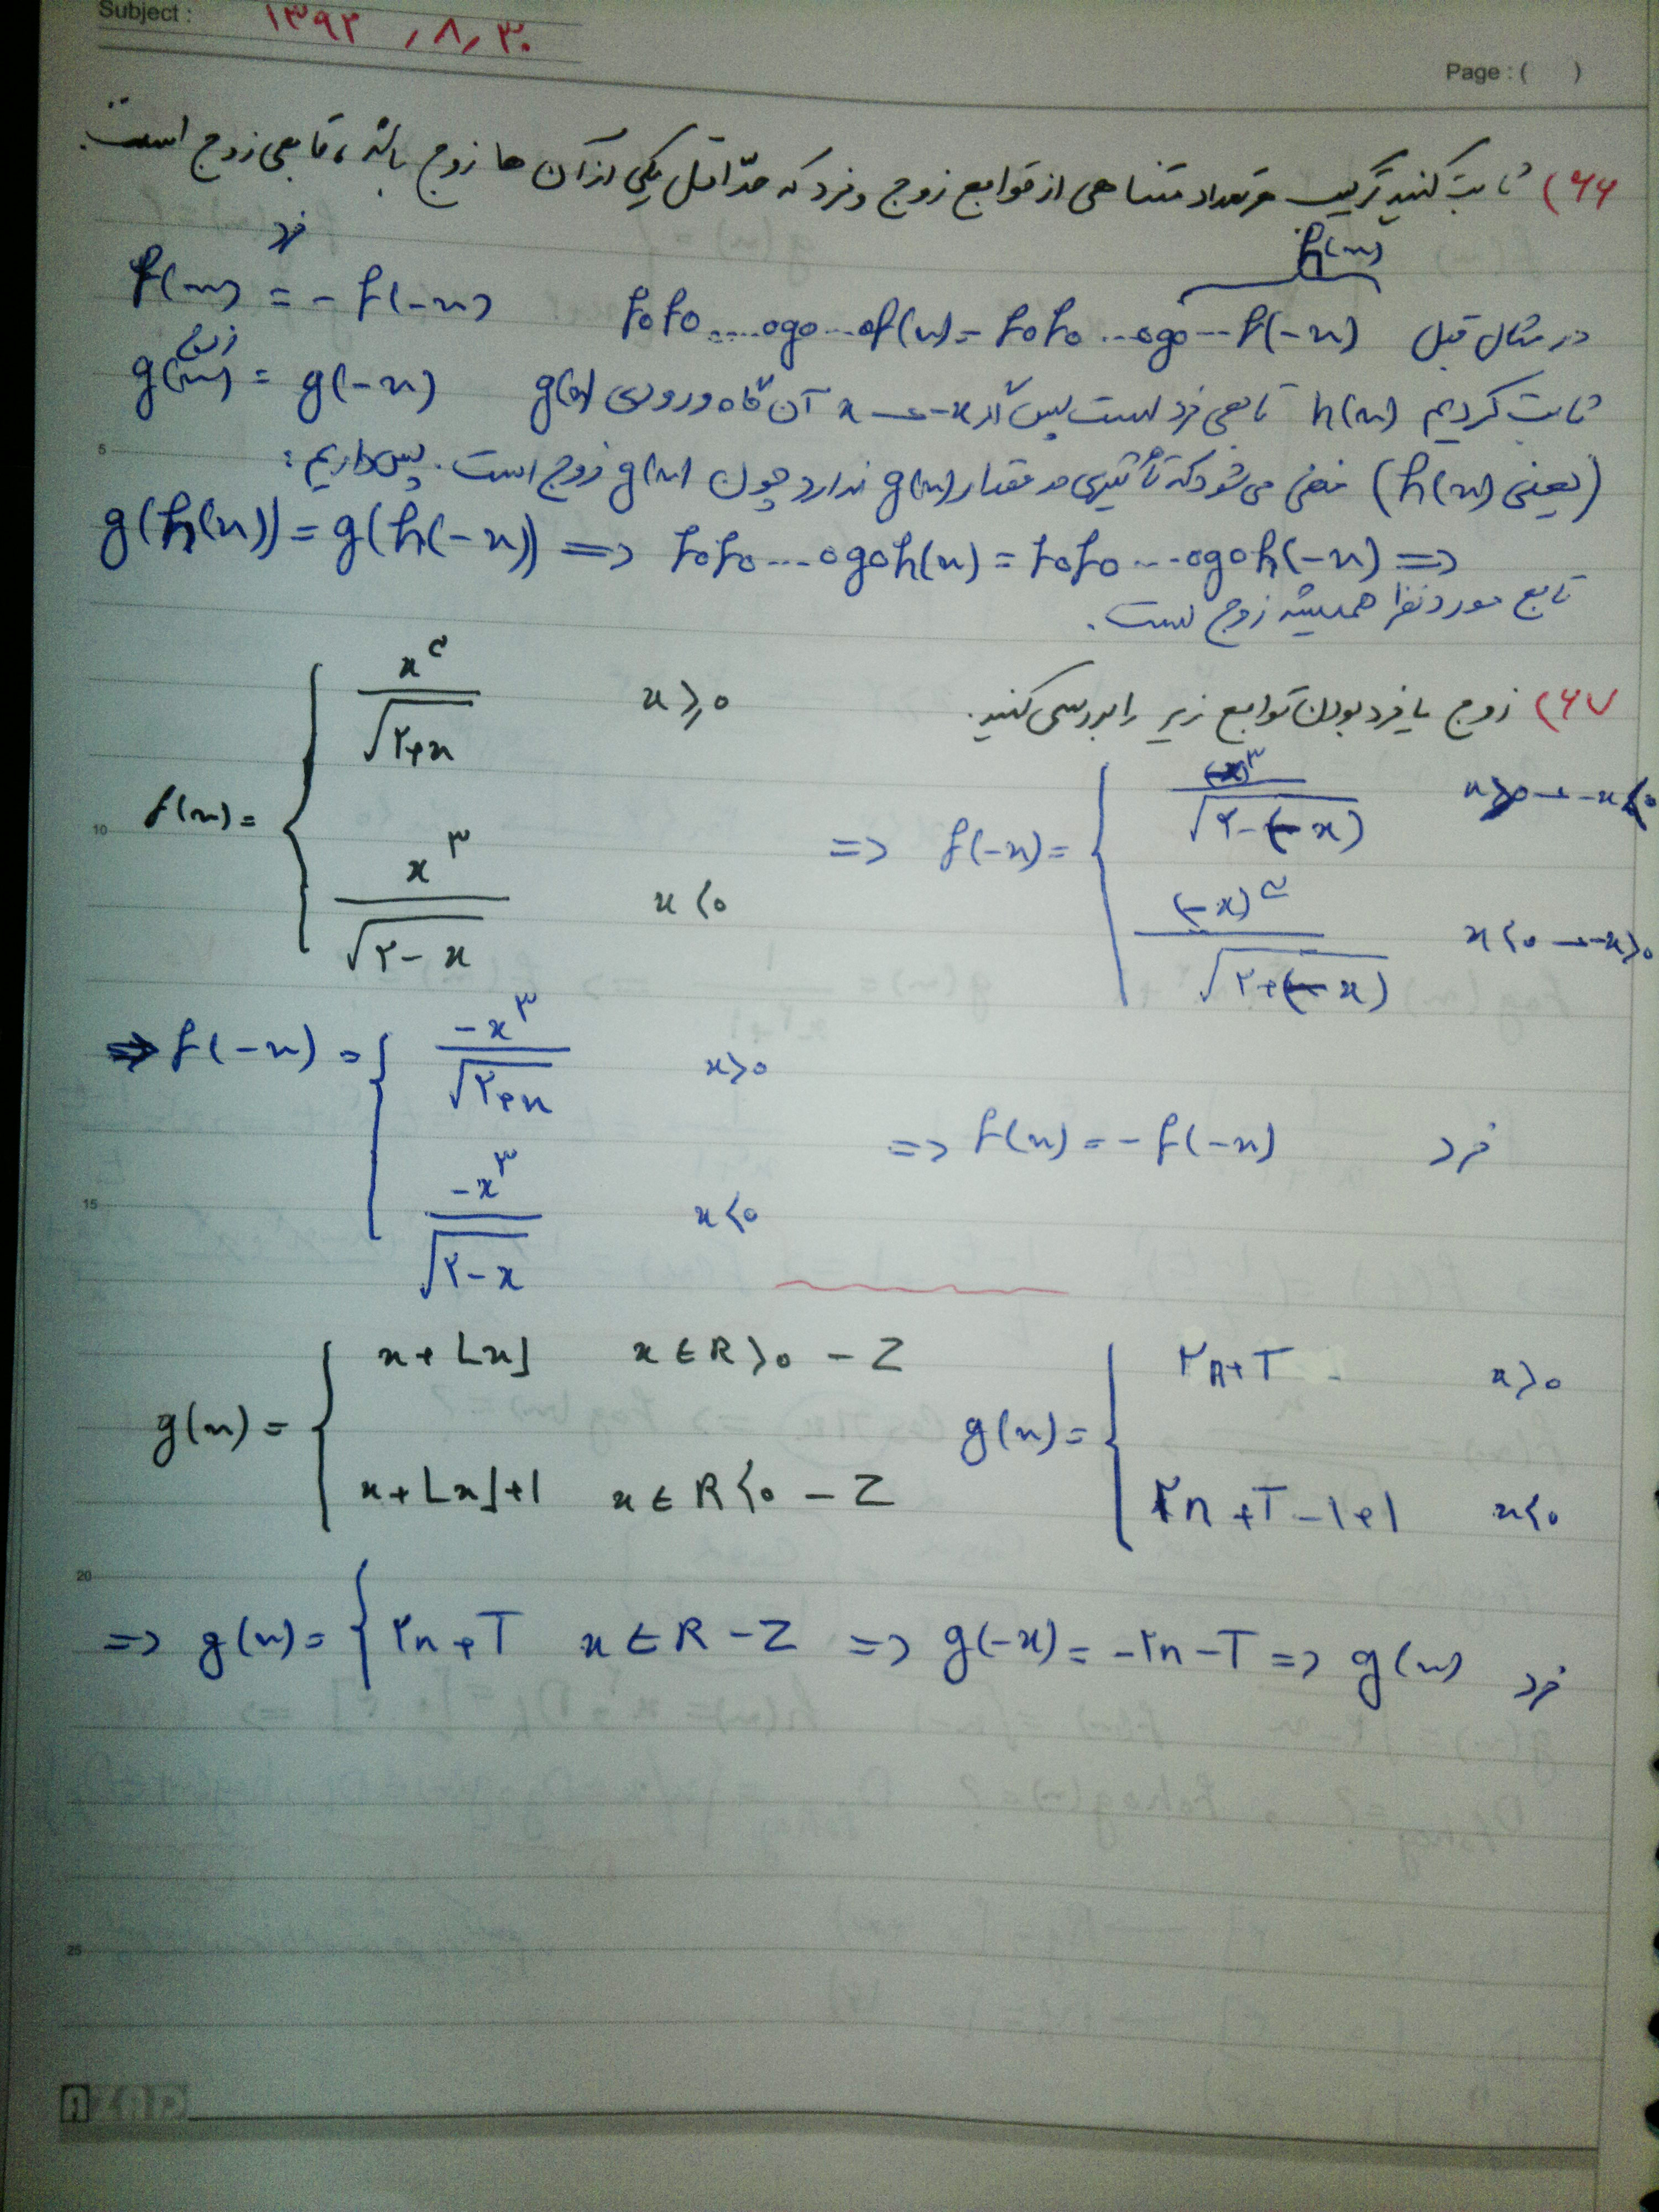 Subject : ۱۳۹۲ / ۸ / ۳۰
Page : ( )
۶۶) ثابت کنید ترکیب هر تعداد متناهی از توابع زوج و فرد که حدّاقل یکی از آن ها زوج باشد، تابعی زوج است.
f(x) = - f(-x) فرد
h(x)
fofo....ogo...of(x) = fofo...ogo...f(-x) در مثال قبل
g(x) = g(-x) زوج
ثابت کردیم h(x) تابعی فرد است پس اگر x → -x آن گاه ورودی g(x)
(یعنی h(x)) منفی می شود که تأثیری در مقدار g(x) ندارد چون g(x) زوج است. پس داریم:
g(h(x)) = g(h(-x)) => fofo...ogoh(x) = fofo...ogoh(-x) =>
تابع مورد نظر همیشه زوج است.
۶۷) زوج یا فرد بودن توابع زیر را بررسی کنید.
f(x) = { x^۳ / √(۲+x) x ≥ 0
x^۳ / √(۲-x) x < 0
=> f(-x) = { (-x)^۳ / √(۲-(-x)) x ≥ 0 → -x < 0
(-x)^۳ / √(۲+(-x)) x < 0 → -x > 0
=> f(-x) = { -x^۳ / √(۲+x) x > 0
-x^۳ / √(۲-x) x < 0
=> f(x) = - f(-x) فرد
g(x) = { x + ⌊x⌋ x ∈ R > 0 - Z
x + ⌊x⌋ + 1 x ∈ R < 0 - Z
g(x) = { ۲n + T x > 0
۲n + T - 1 + 1 x < 0
=> g(x) = { ۲n + T x ∈ R - Z => g(-x) = -۲n - T => g(x) فرد
5
10
15
20
25
AZAD